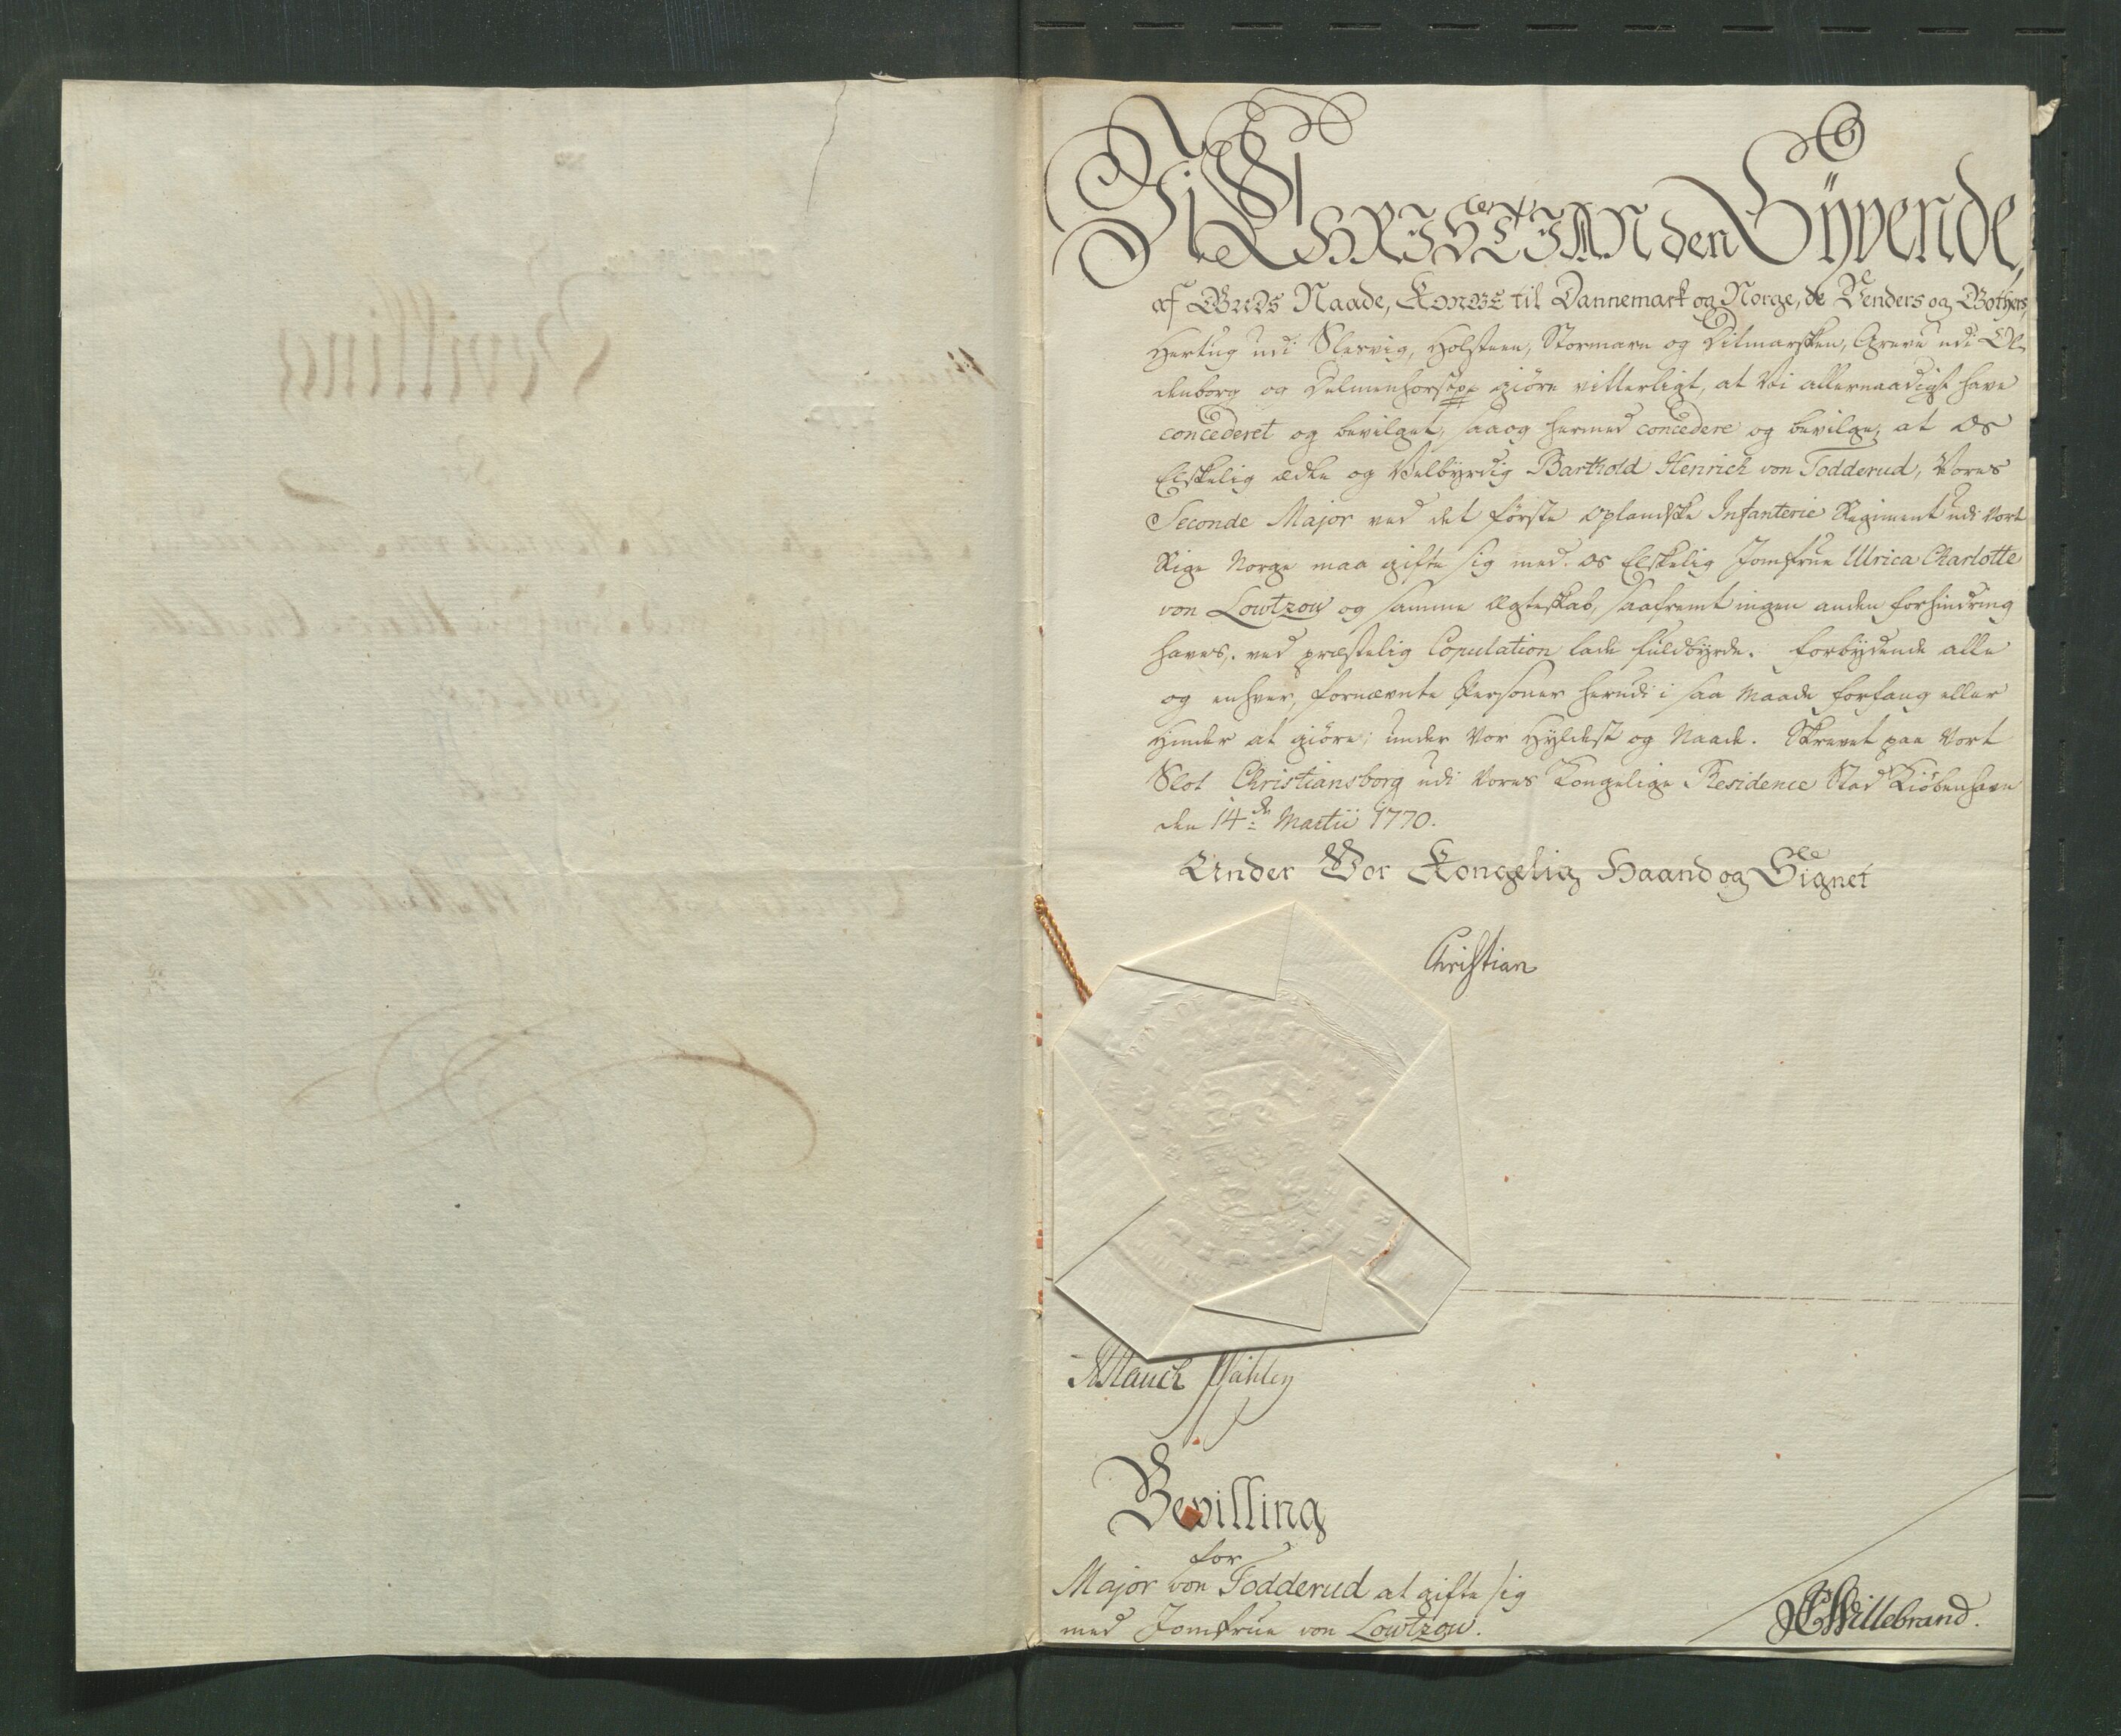 Vi CHRISTIAN den Syvende,
af GUDS Naade, KONGE til Dannemark og Norge, de Venders og Gothers,
Hertug udi Slesvig, Holsteen, Stormarn og Ditmarsken, Greve udi Ol-
denborg og Delmenhorst pp giøre vitterligt, at Vi allernaadigst have
concederet og bevilget, saa og hermed concedere og bevilge, at Os
Elskelig ædle og Velbyrdig Barthold Henrich von Todderud, Vores
Seconde Major ved det første Oplandske Infanterie Regiment udi Vort
Rige Norge maa gifte sig med Os Elskelig Jomfrue Ulrica Charlotte
von Lowtzow og samme Ægteskab, saafremt ingen anden forhindring
haves, ved præstelig Copulation lade fuldbyrde. Forbydende alle
og enhver, fornævnte Personer herudi i saa Maade forfang eller
Hinder at giøre; under Vor Hyldest og Naade. Skrevet paa Vort
Slot Christiansborg udi Vores Kongelige Residence Stad Kiøbenhavn
den 14de Martii 1770.
Under Vor Kongelig Haand og Signet
Christian
Bevilling
for
Major von Todderud at gifte sig
med Jomfrue von Lowtzow.
Willebrand.